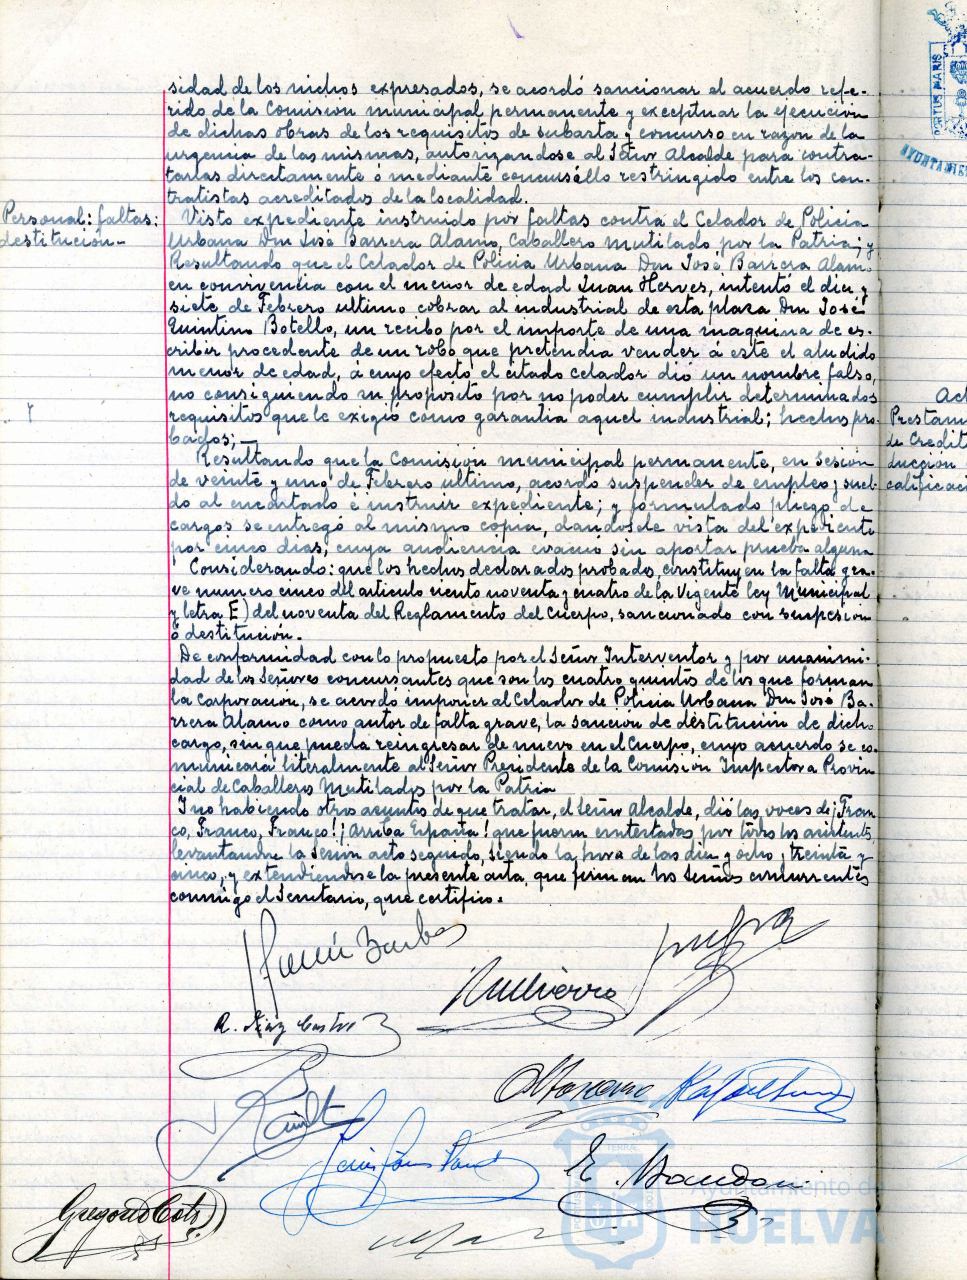 sidad de los nichos expresados, se acordó sancionar el acuerdo refe-
rido de la Comision municipal permanente y exceptuar la ejecución
de dichas obras de los requisitos de subasta y concurso en razon de la
urgencia de las mismas, autorizandose al Señor Alcalde para contra-
tarlas directamente ó mediante concursillo restringido entre los con-
tratistas acreditados de la localidad.
Personal: faltas:
destitución-
Visto expediente instruido por faltas contra el Celador de Policia
Urbana Don José Barrera Alamo, Caballero Mutilado por la Patria; y
Resultando que el Celador de Policia Urbana Don José Barrera Alamo
en convivencia con el menor de edad Juan Herves, intentó el dia
siete de Febrero ultimo cobrar al industrial de esta plaza Don José
Quintino Botello, un recibo por el importe de una maquina de es-
cribir procedente de un robo que pretendia vender á este el aludido
menor de edad, á cuyo efecto el citado celador dió un nombre falso,
no consiguiendo su proposito por no poder cumplir determinados
requisitos que le exigió como garantia aquel industrial; hechos pro-
bados;-
Resultando que la Comision municipal permanente, en sesion
de veinte y uno de Febrero ultimo, acordó suspender de empleo y suel-
do al encartado é instruir expediente; y formulado pliego de
cargos se entregó al mismo copia, dandosele vista del expediente
por cinco dias, cuya audiencia evacuó sin aportar prueba alguna
Considerando: que los hechos declarados probados constituyen la falta gra-
ve numero cinco del articulo ciento noventa y cuatro de la vigente ley Municipal
y letra E) del noventa del Reglamento del Cuerpo, sancionado con suspesion
ó destitución.-
De conformidad con lo propuesto por el Señor Interventor y por unanimi-
dad de los Señores concursantes que son los cuatro quintos de los que forman
la Corporación, se acordó imponer al Celador de Policia Urbana Don José Ba-
rrera Alamo como autor de falta grave, la sanción de destitución de dicho
cargo, sin que pueda reingresar de nuevo en el Cuerpo, cuyo acuerdo se co-
municará literalmente al Señor Presidente de la Comisión Inspectora Provin
cial de Caballeros Mutilados por la Patria
Y no habiendo otros asuntos de que tratar, el Señor Alcalde, dió las voces de ¡Fran
co, Franco, Franco! ¡Arriba España! que fueron contestadas por todos los asistentes,
levantandose la sesion acto seguido, siendo la hora de las diez y ocho, treinta y
cinco, y extendiendose la presente acta, que firman los Señores concurrentes
conmigo el Secretario, que certifico.
Gregorio
TERRAE
Ayuntamiento de
HUELVA
PORTUS MARIS
Prestam
de Credit
ducción
calificaci